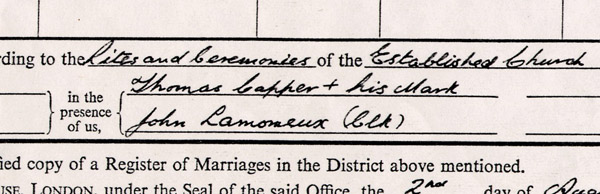 ding to the Rites and Ceremonies of the Established Church
in the presence of us, Thomas Capper + his Mark
John Lamoreux (Clk)
fied copy of a Register of Marriages in the District above mentioned.
USE, LONDON, under the Seal of the said Office, the 2nd day of